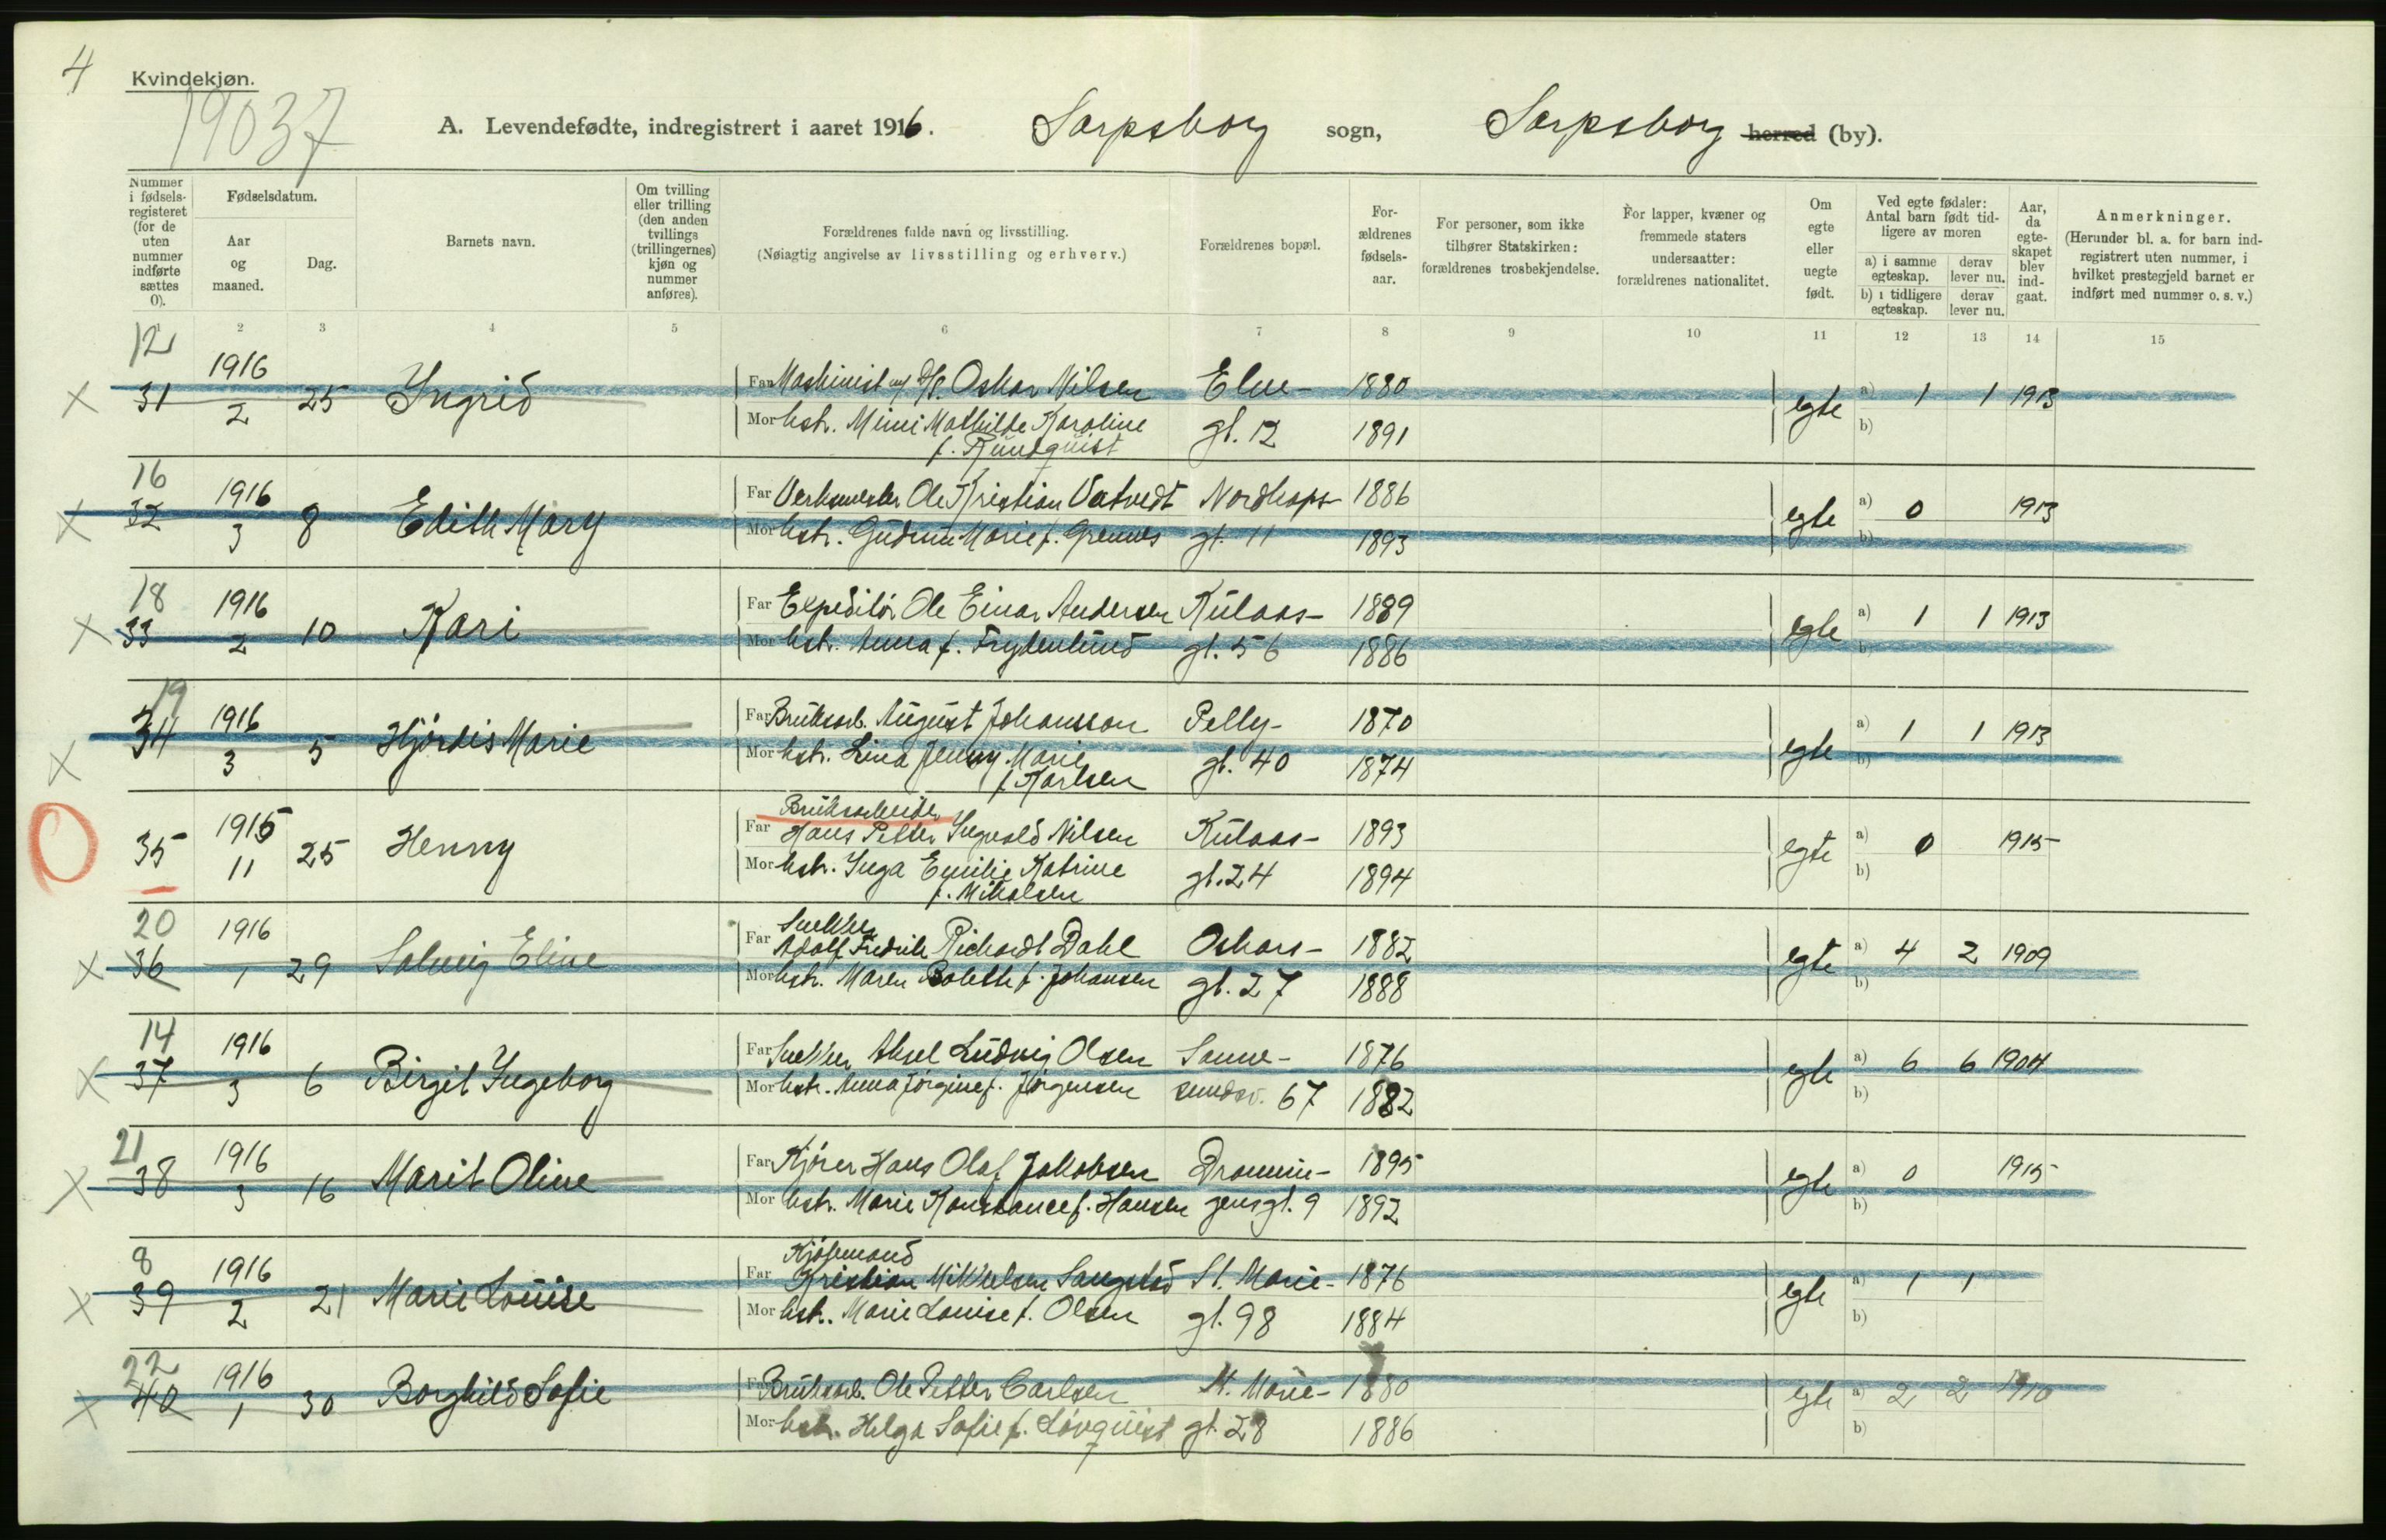 4
Kvindekjøn.
19037
A. Levendefødte, indregistrert i aaret 1916. Sarpsborg sogn, Sarpsborg herred (by).
Nummer i fødselsregisteret (for de uten nummer indførte sættes 0).
Fødselsdatum.
Aar og maaned.
Dag.
Barnets navn.
Om tvilling eller trilling (den anden tvillings (trillingernes) kjøn og nummer anføres).
Forældrenes fulde navn og livsstilling.
(Nøiagtig angivelse av livsstilling og erhverv.)
Forældrenes bopæl.
Forældrenes fødselsaar.
For personer, som ikke tilhører Statskirken: forældrenes trosbekjendelse.
For lapper, kvæner og fremmede staters undersaatter: forældrenes nationalitet.
Om egte eller uegte født.
Ved egte fødsler: Antal barn født tidligere av moren
a) i samme egteskap. derav lever nu.
b) i tidligere egteskap. derav lever nu.
Aar, da egteskapet blev indgaat.
Anmerkninger.
(Herunder bl. a. for barn indregistrert uten nummer, i hvilket prestegjeld barnet er indført med nummer o. s. v.)
1 2 3 4 5 6 7 8 9 10 11 12 13 14 15
12
31 1916 2 25 Ingrid Far Maskinist Oskar Nilsen Elve- 1880 egte a) 1 1 1913
Mor hstr. Mimi Mathilde Karoline gt. 12 1891 b)
f. Rundquist
16
32 1916 3 8 Edith Mary Far Verksmester Ole Kristian Vatvedt Nordkaps- 1886 egte a) 0 1913
Mor hstr. Gudrun Marie f. Grennes gt. 11 1893 b)
18
33 1916 2 10 Kari Far Expeditør Ole Einar Andersen Kulaas- 1889 egte a) 1 1 1913
Mor hstr. Anna f. Frydenlund gt. 56 1886 b)
19
34 1916 3 5 Hjördis Marie Far Bruksarb. August Johansson Pelly- 1870 egte a) 1 1 1913
Mor hstr. Lina Jenny Marie gt. 40 1874 b)
f. Karlsen
Bruksarbeider
35 1915 11 25 Henny Far Hans Petter Ingvald Nilsen Kulaas- 1893 egte a) 0 1915
Mor hstr. Inga Emilie Katrine gt. 24 1894 b)
f. Mikalsen
20 Snekker
36 1916 1 29 Solveig Eline Far Adolf Fredrik Richardt Dahl Oskars- 1882 egte a) 4 2 1909
Mor hstr. Maren Bolette f. Johansen gt. 27 1888 b)
14
37 1916 3 6 Birgit Ingeborg Far Snekker Aksel Ludvig Olsen Sanne- 1876 egte a) 6 6 1904
Mor hstr. Anna Jörgine f. Jörgensen sundsv. 67 1882 b)
21
38 1916 3 16 Marit Oline Far Kjører Hans Olaf Jakobsen Dronnin- 1895 egte a) 0 1915
Mor hstr. Marie Konstance f. Hansen gens gt. 9 1892 b)
8 Kjøbmand
39 1916 2 21 Marie Louise Far Kristian Mikkelsen Saugstad St. Marie- 1876 egte a) 1 1
Mor hstr. Marie Louise f. Olsen gt. 98 1884 b)
22
40 1916 1 30 Borghild Sofie Far Bruksarb. Ole Petter Carlsen St. Marie- 1880 egte a) 2 2 1910
Mor hstr. Helga Sofie f. Lövquist gt. 28 1886 b)